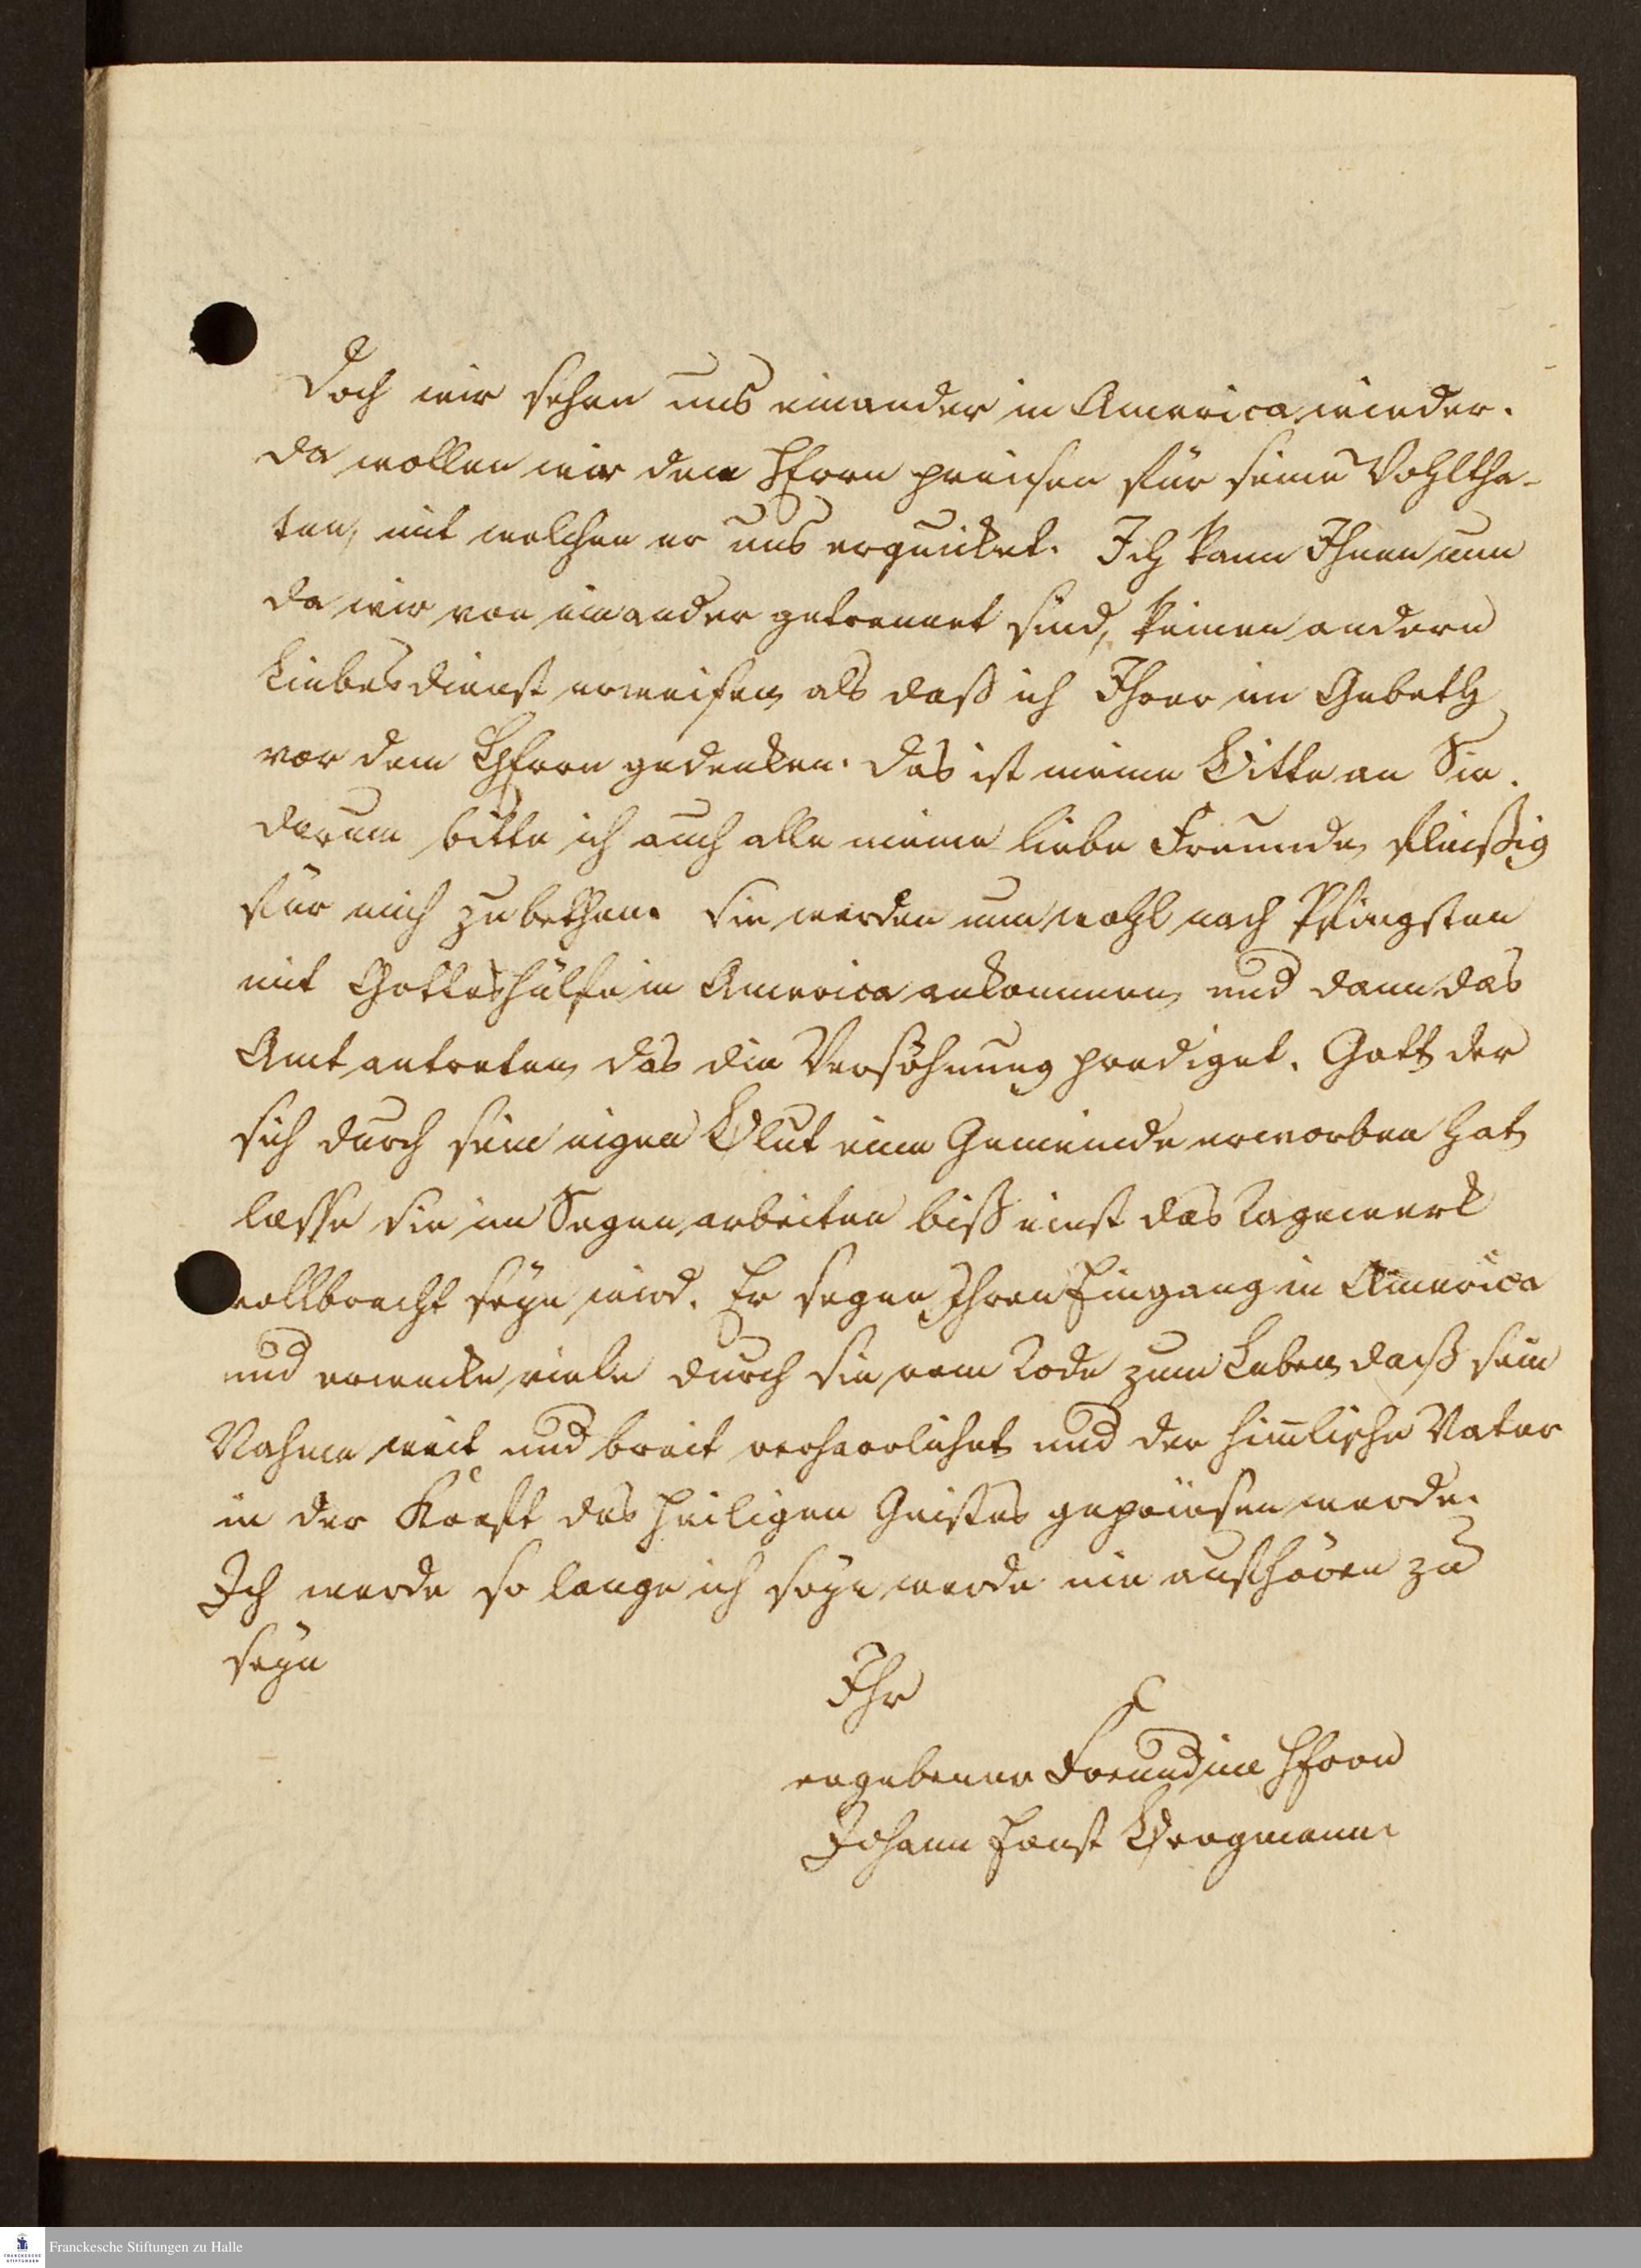 Doch wir sehen uns einander in America wieder.
Da wollen wir dem HErrn preisen für seine Wohltha-
ten, mit welchen er uns erquicket. Ich kann Ihnen nun
da wir von einander getrennet sind, keinen andern
Liebesdienst erweisen, als daß ich Ihrer im Gebeth
vor dem HErrn gedenken. Das ist meine Bitte an Sie.
Darum bitte ich auch alle meine liebe Freunde, fleißig
für mich zu bethen. Sie werden nun wohl nach Pfingsten
mit Gottes hülfe in America ankommen, und dann das
Amt antreten, das die Versöhnung prediget. Gott der
sich durch sein eigen Blut eine Gemeinde erworben hat,
lasse sie im Segen arbeiten biß einst das Tagewerk
vollbracht seyn wird. Er segne Ihren Eingang in America
und erwecke viele durch sie vom Tode zum Leben, daß sein
Nahme weit und breit verherrlichet, und der him̄lische Vater
in der Kraft des heiligen Geistes gepriesen werde.
Ich werde so lange ich seyn werde nie aufhören zu
seyn
Ihr
ergebener Freund im HErrn
Johann Ernst Bergmann.
Franckesche Stiftungen zu Halle
FRANCKESCHE
STIFTUNGEN